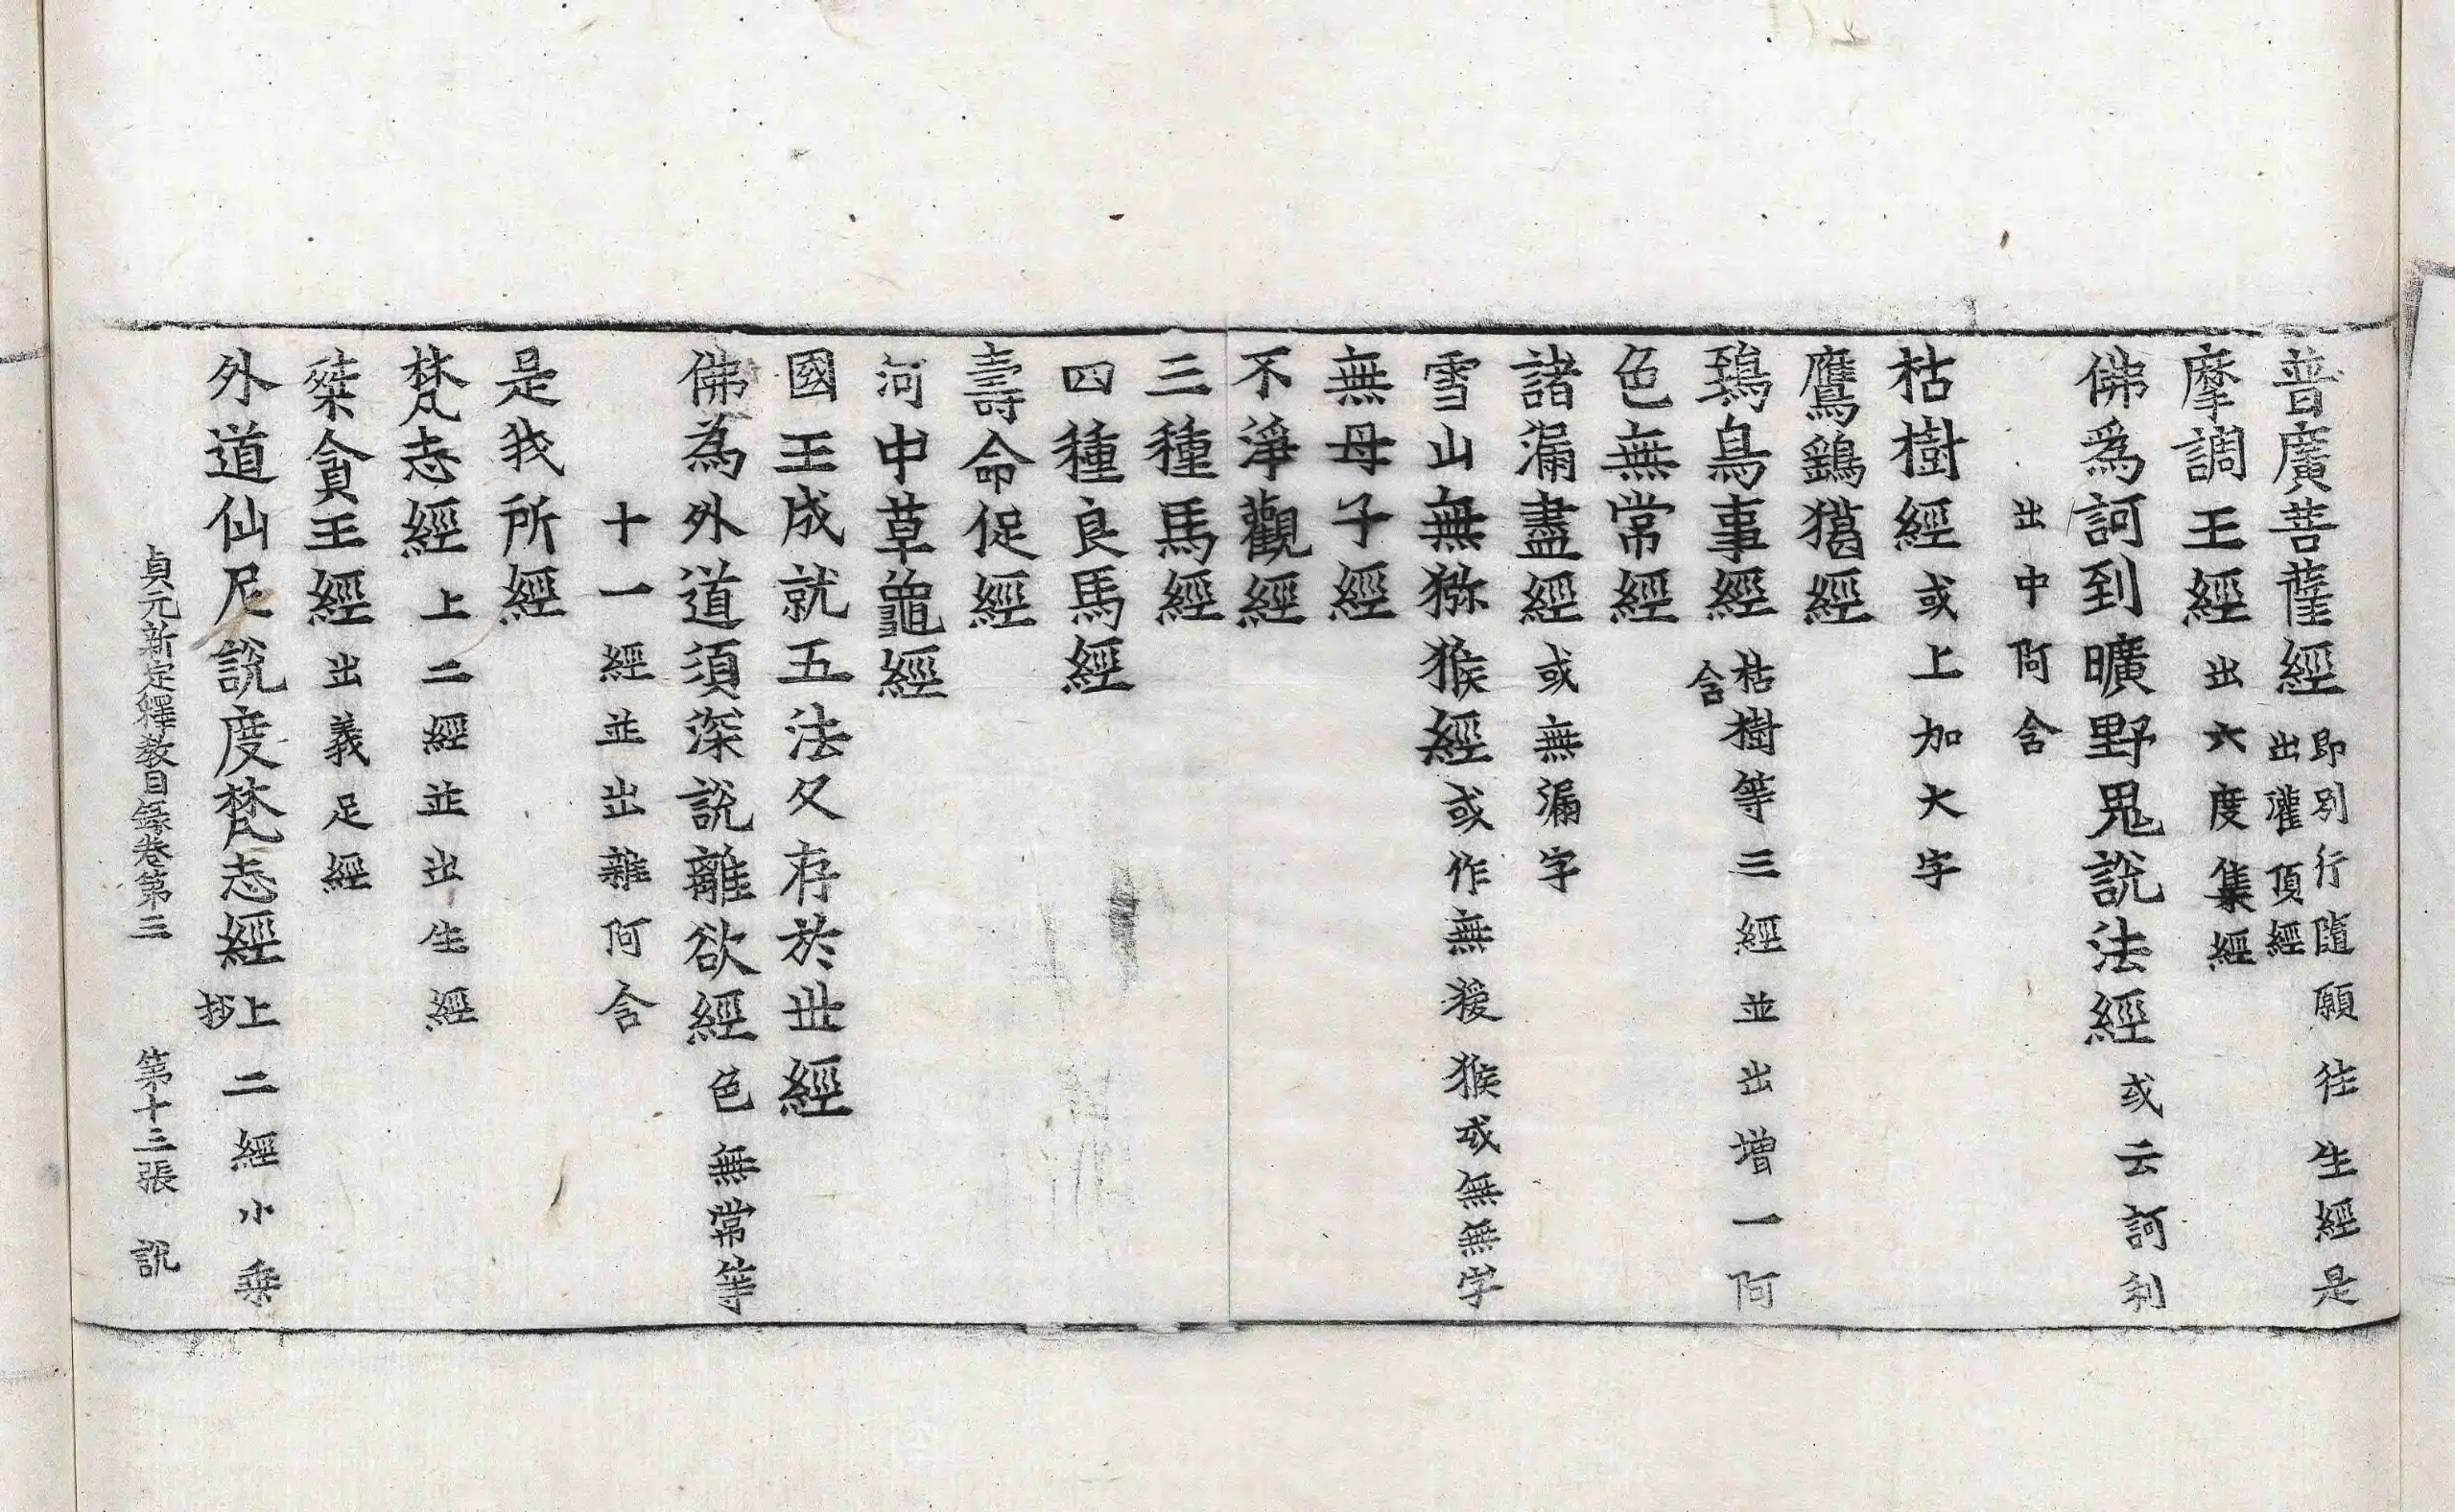 普廣菩薩經即別行隨願徃生經是出灌頂經
摩調王經出六度集經
佛爲訶到曠野鬼說法經或云訶利
出中阿含
枯樹經或上加大字
鷹鷂獦經
鵄鳥事經枯樹等三經並出增一阿含
色無常經
諸漏盡經或無漏字
雪山無猕猴經或作無猨猴或無無字
無母子經
不淨觀經
三種馬經
四種良馬經
壽命促經
河中草龜經
國王成就五法久存於世經
佛為外道須深說離欲經色無常等
十一經並出雜阿含
是我所經
梵志經上二經並出生經
桀貪王經出義足經
外道仙尼說度梵志經上二經小乗抄
貞元新定釋教目録卷第三 第十三張 說